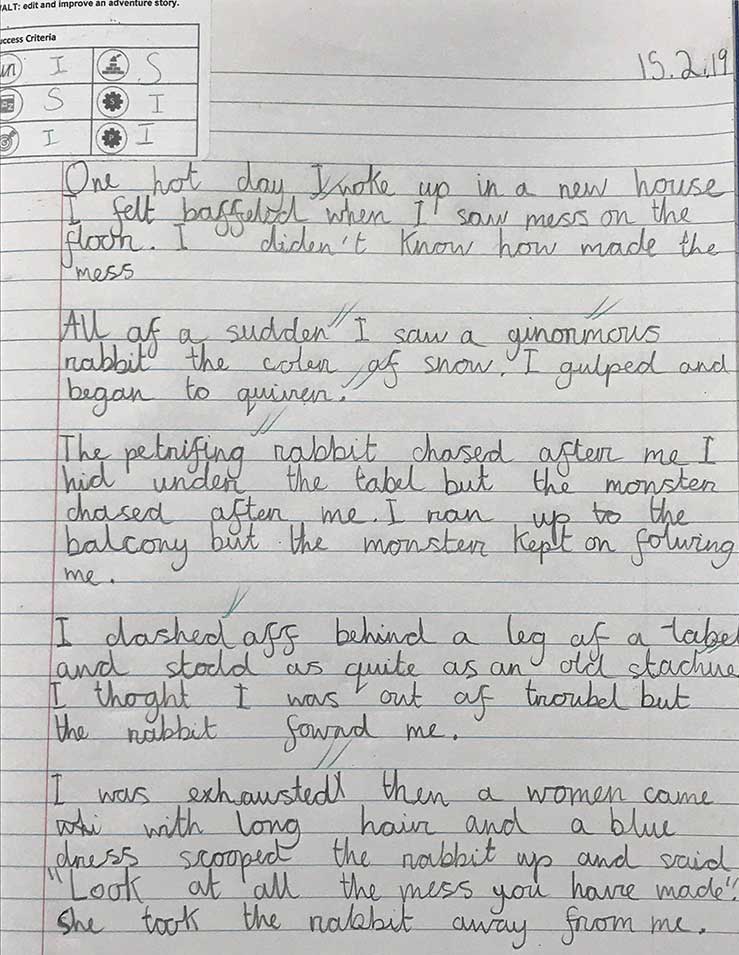 ALT: edit and improve an adventure story.
uccess Criteria
I S
S I
I I
15.2.19
One hot day I woke up in a new house
I felt baffeled when I saw mess on the
floor. I diden't know how made the
mess
All of a sudden I saw a ginormous
rabbit the coler of snow. I gulped and
began to quiver.
The petrifing rabbit chased after me I
hid under the tabel but the monster
chased after me. I ran up to the
balcony but the monster kept on folwing
me.
I dashed off behind a leg of a tabel
and stodd as quite as an old stachue
I thoght I was out of troubel but
the rabbit fownd me.
I was exhausted then a women came
with long hair and a blue
dress scooped the rabbit up and said
"Look at all the mess you have made".
She took the rabbit away from me.